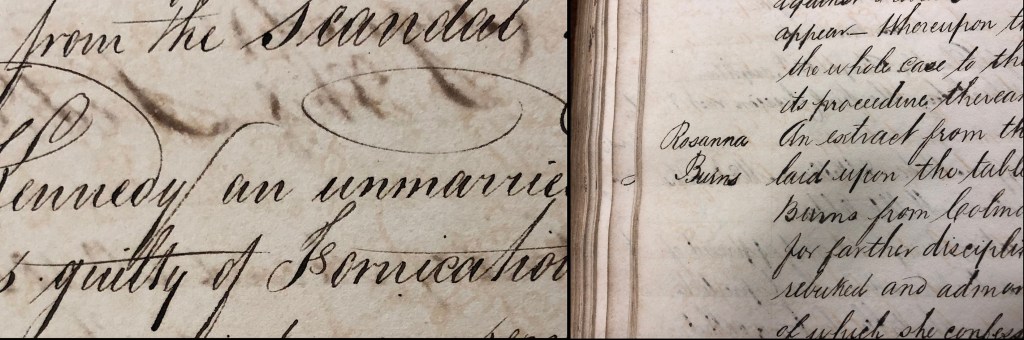 from the Scandal
Kennedy an unmarrie
s guilty of Fornication
appear— thereupon th
the whole case to the
its procedure therean
Rosanna
Burns
An extract from th
laid upon the table
Burns from Colmo
for farther disciplin
rebuked and admon
of which she confess